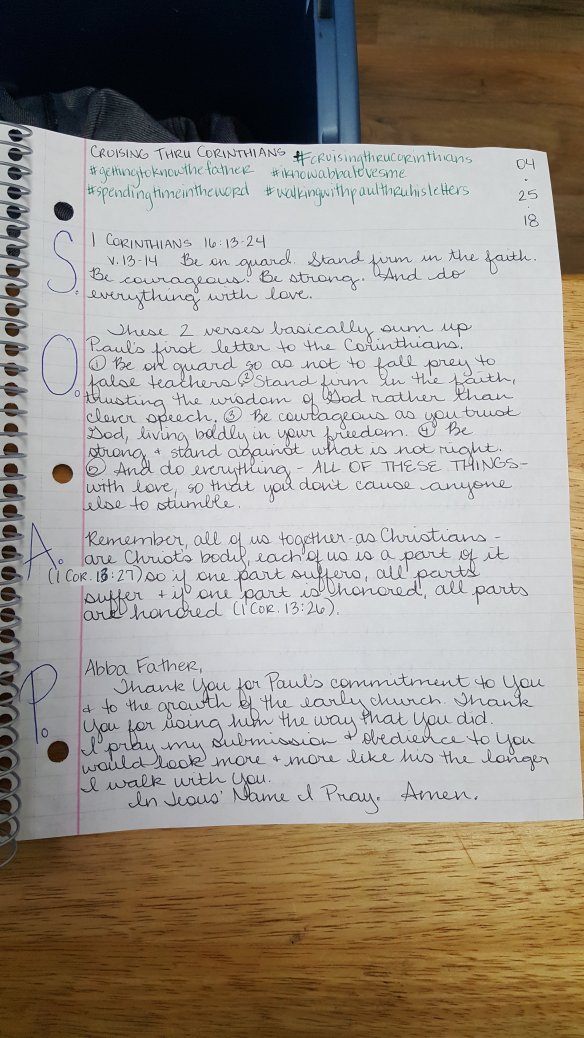 CRUISING THRU CORINTHIANS #cruisingthrucorinthians
#gettingtoknowthefather #iknowabbalovesme
#spendingtimeintheword #walkingwithpaulthruhisletters
04
.
25
.
18
S.
1 CORINTHIANS 16:13-24
v.13-14 Be on guard. Stand firm in the faith.
Be courageous. Be strong. And do
everything with love.
O.
These 2 verses basically sum up
Paul's first letter to the Corinthians.
① Be on guard so as not to fall prey to
false teachers. ② Stand firm in the faith,
trusting the wisdom of God rather than
clever speech. ③ Be courageous as you trust
God, living boldly in your freedom. ④ Be
strong + stand against what is not right.
⑤ And do everything - ALL OF THESE THINGS -
with love, so that you don't cause anyone
else to stumble.
A.
Remember, all of us together - as Christians -
are Christ's body, each of us is a part of it
(1 COR. 13:27) so if one part suffers, all parts
suffer + if one part is honored, all parts
are honored (1 COR. 13:26).
P.
Abba Father,
Thank You for Paul's commitment to You
+ to the growth of the early church. Thank
You for using him the way that You did.
I pray my submission + obedience to You
would look more + more like his the longer
I walk with You.
In Jesus' Name I Pray. Amen.